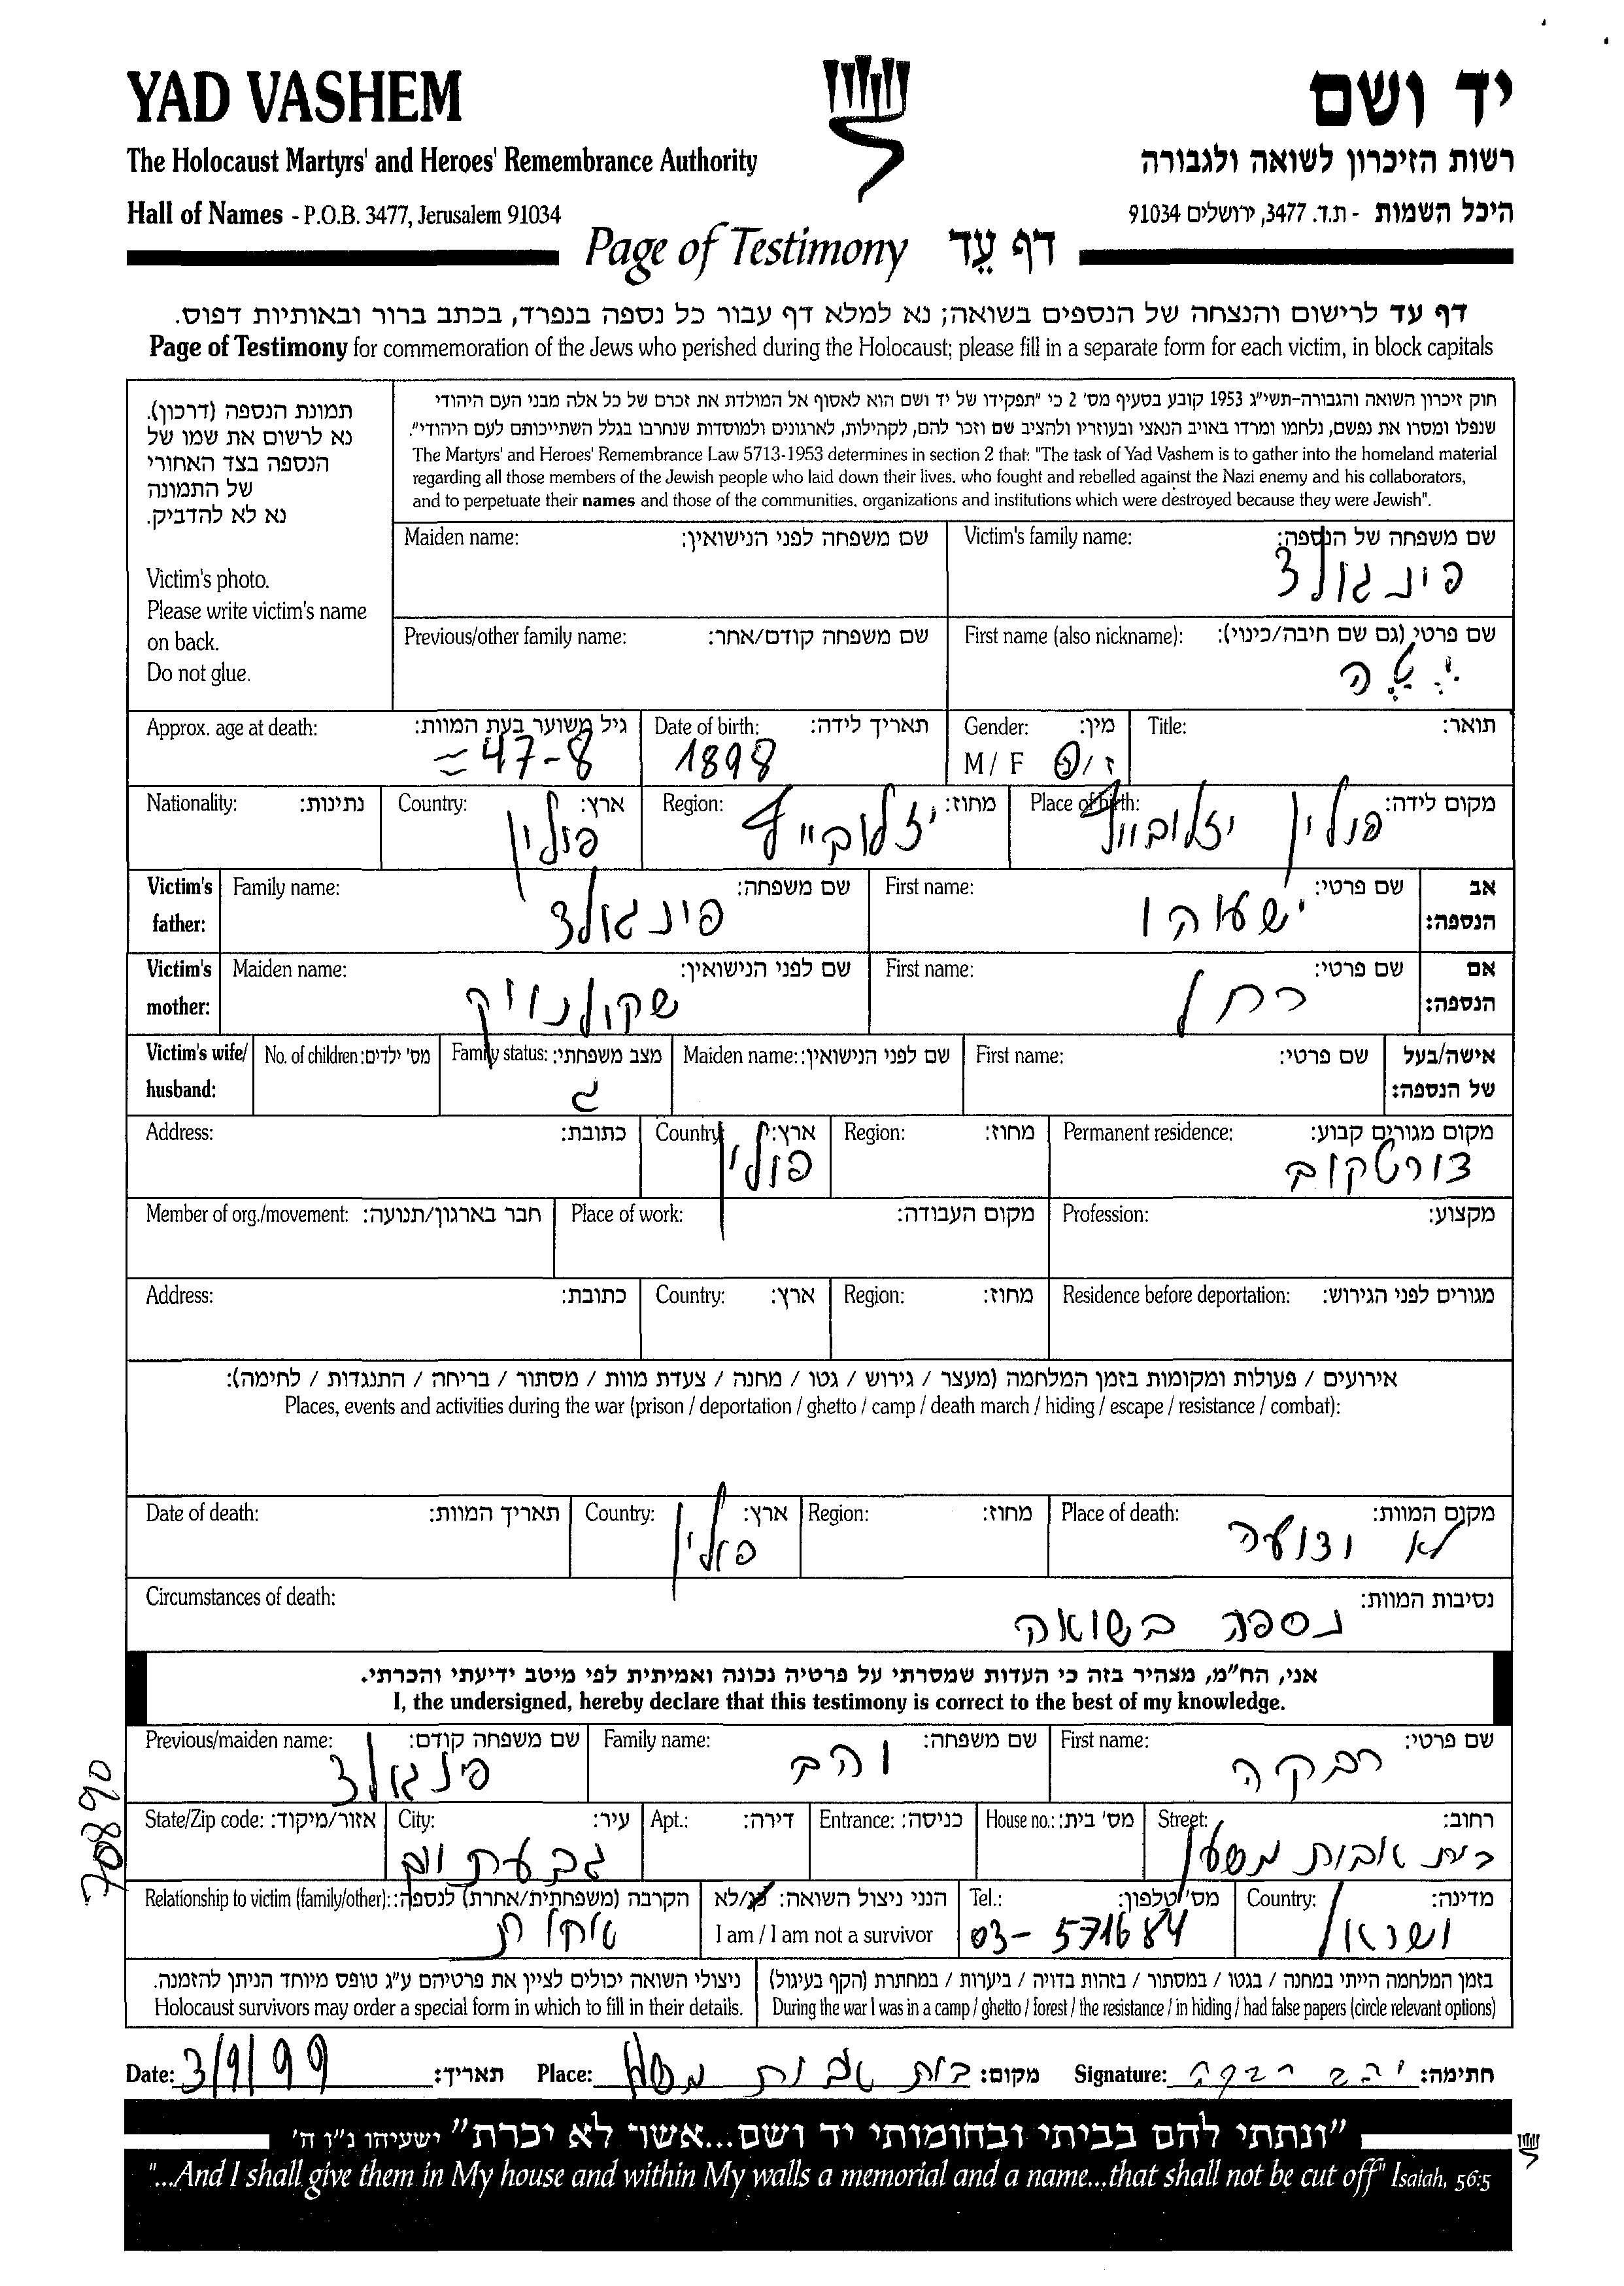 YAD VASHEM
יד ושם
The Holocaust Martyrs' and Heroes' Remembrance Authority
רשות הזיכרון לשואה ולגבורה
Hall of Names - P.O.B. 3477, Jerusalem 91034
היכל השמות - ת.ד. 3477, ירושלים 91034
Page of Testimony דף עֵד
דף עד לרישום והנצחה של הנספים בשואה; נא למלא דף עבור כל נספה בנפרד, בכתב ברור ובאותיות דפוס.
Page of Testimony for commemoration of the Jews who perished during the Holocaust; please fill in a separate form for each victim, in block capitals
תמונת הנספה (דרכון).
נא לרשום את שמו של
הנספה בצד האחורי
של התמונה
נא לא להדביק.
Victim's photo.
Please write victim's name
on back.
Do not glue.
חוק זיכרון השואה והגבורה-תשי"ג 1953 קובע בסעיף מס' 2 כי "תפקידו של יד ושם הוא לאסוף אל המולדת את זכרם של כל אלה מבני העם היהודי
שנפלו ומסרו את נפשם, נלחמו ומרדו באויב הנאצי ובעוזריו ולהציב שם וזכר להם, לקהילות, לארגונים ולמוסדות שנחרבו בגלל השתייכותם לעם היהודי".
The Martyrs' and Heroes' Remembrance Law 5713-1953 determines in section 2 that: "The task of Yad Vashem is to gather into the homeland material
regarding all those members of the Jewish people who laid down their lives, who fought and rebelled against the Nazi enemy and his collaborators,
and to perpetuate their names and those of the communities, organizations and institutions which were destroyed because they were Jewish".
שם משפחה של הנספה: Victim's family name:
פינגולד
שם משפחה לפני הנישואין: Maiden name:
שם פרטי (גם שם חיבה/כינוי): First name (also nickname):
יטה
שם משפחה קודם/אחר: Previous/other family name:
תואר: Title:
מין: Gender:
ז/נ M / F
תאריך לידה: Date of birth:
1898
גיל משוער בעת המוות: Approx. age at death:
≈ 47-8
מקום לידה: Place of birth:
פולין
מחוז: Region:
ארץ: Country:
פולין
נתינות: Nationality:
אב הנספה: Victim's father:
שם פרטי: First name:
ישעיהו
שם משפחה: Family name:
פינגולד
אם הנספה: Victim's mother:
שם פרטי: First name:
רחל
שם לפני הנישואין: Maiden name:
שקולניק
אישה/בעל של הנספה: Victim's wife/husband:
שם פרטי: First name:
שם לפני הנישואין: Maiden name:
מצב משפחתי: Family status:
מס' ילדים: No. of children:
מקום מגורים קבוע: Permanent residence:
צורטקוב
מחוז: Region:
ארץ: Country:
פולין
כתובת: Address:
מקצוע: Profession:
מקום העבודה: Place of work:
חבר בארגון/תנועה: Member of org./movement:
מגורים לפני הגירוש: Residence before deportation:
מחוז: Region:
ארץ: Country:
כתובת: Address:
אירועים / פעולות ומקומות בזמן המלחמה (מעצר / גירוש / גטו / מחנה / צעדת מוות / מסתור / בריחה / התנגדות / לחימה):
Places, events and activities during the war (prison / deportation / ghetto / camp / death march / hiding / escape / resistance / combat):
מקום המוות: Place of death:
לא ידוע
מחוז: Region:
ארץ: Country:
פולין
תאריך המוות: Date of death:
נסיבות המוות: Circumstances of death:
נספתה בשואה
אני, הח"מ, מצהיר בזה כי העדות שמסרתי על פרטיה נכונה ואמיתית לפי מיטב ידיעתי והכרתי.
I, the undersigned, hereby declare that this testimony is correct to the best of my knowledge.
שם פרטי: First name:
רבקה
שם משפחה: Family name:
והב
שם משפחה קודם: Previous/maiden name:
פינגולד
רחוב: Street:
בית אבות משען
מס' בית: House no.:
כניסה: Entrance:
דירה: Apt.:
עיר: City:
אזור/מיקוד: State/Zip code:
מדינה: Country:
ישראל
מס' טלפון: Tel.:
03-571684
הנני ניצול השואה: כן/לא
I am / I am not a survivor
הקרבה (משפחתית/אחרת) לנספה: Relationship to victim (family/other):
אחות
בזמן המלחמה הייתי במחנה / בגטו / במסתור / בזהות בדויה / ביערות / במחתרת (הקף בעיגול)
During the war I was in a camp / ghetto / forest / the resistance / in hiding / had false papers (circle relevant options)
ניצולי השואה יכולים לציין את פרטיהם ע"ג טופס מיוחד הניתן להזמנה.
Holocaust survivors may order a special form in which to fill in their details.
חתימה: Signature: והב רבקה
מקום: Place: בית אבות משען
תאריך: Date: 3/9/99
"ונתתי להם בביתי ובחומותי יד ושם...אשר לא יכרת" ישעיהו נ"ו ה'
"...And I shall give them in My house and within My walls a memorial and a name...that shall not be cut off" Isaiah, 56:5